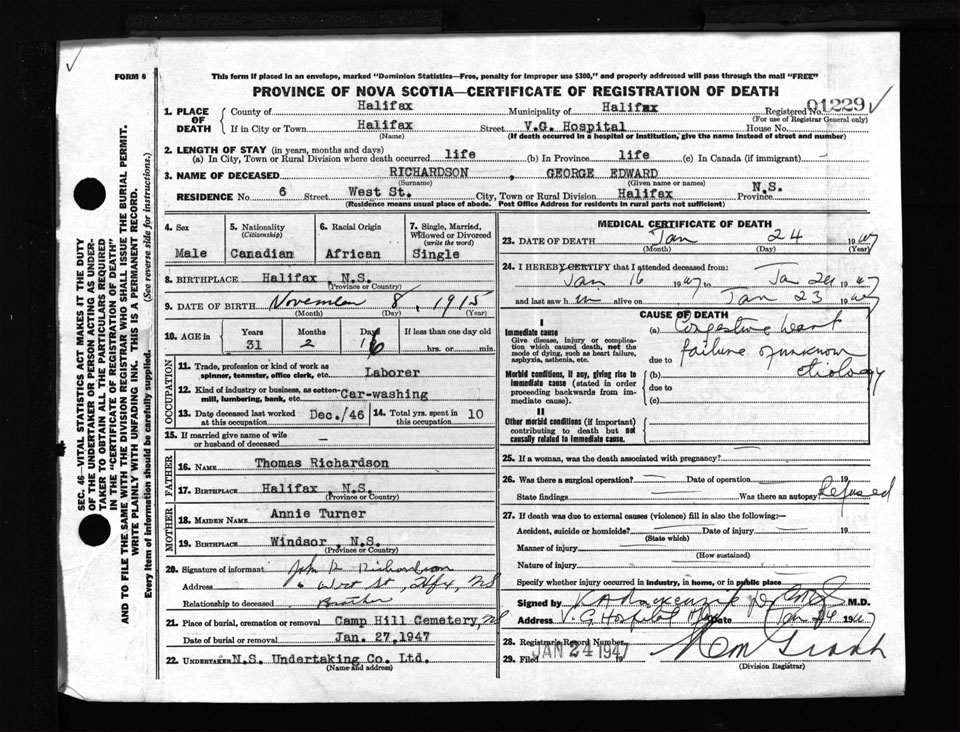 FORM 6
This form if placed in an envelope, marked "Dominion Statistics—Free, penalty for improper use $300," and properly addressed will pass through the mail "FREE"
PROVINCE OF NOVA SCOTIA—CERTIFICATE OF REGISTRATION OF DEATH
SEC. 46—VITAL STATISTICS ACT MAKES IT THE DUTY
OF THE UNDERTAKER OR PERSON ACTING AS UNDER-
TAKER TO OBTAIN ALL THE PARTICULARS REQUIRED
IN THE "CERTIFICATE OF REGISTRATION OF DEATH"
AND TO FILE THE SAME WITH THE DIVISION REGISTRAR WHO SHALL ISSUE THE BURIAL PERMIT.
WRITE PLAINLY WITH UNFADING INK. THIS IS A PERMANENT RECORD.
Every item of information should be carefully supplied. (See reverse side for instructions.)
1. PLACE OF DEATH
County of Halifax Municipality of Halifax Registered No. 01229
(For use of Registrar General only)
If in City or Town Halifax Street V.G. Hospital House No.
(Name) (If death occurred in a hospital or institution, give the name instead of street and number)
2. LENGTH OF STAY (in years, months and days)
(a) In City, Town or Rural Division where death occurred life (b) In Province life (c) In Canada (if immigrant) -
3. NAME OF DECEASED RICHARDSON , GEORGE EDWARD
(Surname) (Given name or names)
RESIDENCE No. 6 Street West St. City, Town or Rural Division Halifax Province N.S.
(Residence means usual place of abode. Post Office Address for residents in rural parts not sufficient)
4. Sex
Male
5. Nationality
(Citizenship)
Canadian
6. Racial Origin
African
7. Single, Married,
Widowed or Divorced
(write the word)
Single
8. BIRTHPLACE Halifax N.S.
(Province or Country)
9. DATE OF BIRTH November 8, 1915
(Month) (Day) (Year)
10. AGE in Years Months Days If less than one day old
31 2 16 hrs. or min.
OCCUPATION
11. Trade, profession or kind of work as
spinner, teamster, office clerk, etc. Laborer
12. Kind of industry or business, as cotton-
mill, lumbering, bank, etc. Car-washing
13. Date deceased last worked
at this occupation Dec./46
14. Total yrs. spent in
this occupation 10
15. If married give name of wife
or husband of deceased -
FATHER
16. NAME Thomas Richardson
17. BIRTHPLACE Halifax N.S.
(Province or Country)
MOTHER
18. MAIDEN NAME Annie Turner
19. BIRTHPLACE Windsor, N.S.
(Province or Country)
20. Signature of informant John Richardson
Address 6 West St, Hfx, NS
Relationship to deceased Brother
21. Place of burial, cremation or removal Camp Hill Cemetery, NS
Date of burial or removal Jan. 27, 1947
22. UNDERTAKER N.S. Undertaking Co. Ltd.
(Name and address)
MEDICAL CERTIFICATE OF DEATH
23. DATE OF DEATH Jan 24 1947
(Month) (Day)
24. I HEREBY CERTIFY that I attended deceased from:
Jan 16 1947 to Jan 24 1947
and last saw him alive on Jan 23 1947
CAUSE OF DEATH
I
Immediate cause
Give disease, injury or compli-
cation which caused death, not the
mode of dying, such as heart failure,
asphyxia, asthenia, etc.
(a) Congestive heart
due to failure of unknown
etiology
Morbid conditions, if any, giving rise to
immediate cause (stated in order
proceeding backwards from im-
mediate cause).
(b)
due to
(c)
II
Other morbid conditions (if important)
contributing to death but not
causally related to immediate cause.
25. If a woman, was the death associated with pregnancy?
26. Was there a surgical operation? Date of operation 19
State findings Was there an autopsy Refused
27. If death was due to external causes (violence) fill in also the following:—
Accident, suicide or homicide? Date of injury 19
(State which)
Manner of injury
(How sustained)
Nature of injury
Specify whether injury occurred in industry, in home, or in public place
Signed by M.D.
Address V.G. Hospital Date Jan 24 1947
28. Registrar's Record Number
29. Filed JAN 24 1947 19
(Division Registrar)